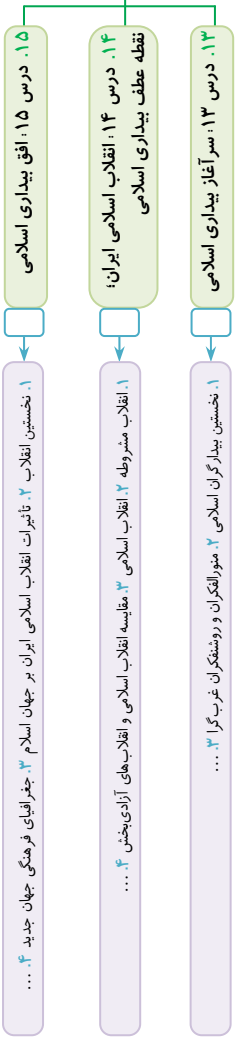 ۱۳. درس ۱۳: سرآغاز بیداری اسلامی
۱. نخستین بیدارگران اسلامی ۲. منورالفکران و روشنفکران غرب‌گرا ۳. ...
۱۴. درس ۱۴: انقلاب اسلامی ایران؛
نقطه عطف بیداری اسلامی
۱. انقلاب مشروطه ۲. انقلاب اسلامی ۳. مقایسه انقلاب اسلامی و انقلاب‌های آزادی‌بخش ۴. ...
۱۵. درس ۱۵: افق بیداری اسلامی
۱. نخستین انقلاب ۲. تأثیرات انقلاب اسلامی ایران بر جهان اسلام ۳. جغرافیای فرهنگی جهان جدید ۴. ...